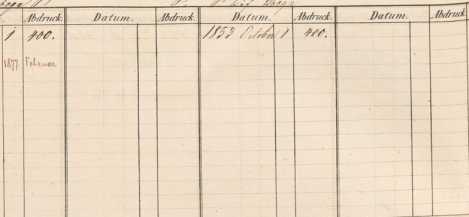 Abdruck. Datum. Abdruck. Datum. Abdruck. Datum. Abdruck.
1 400. 1853 October 1 400.
1877 Februar